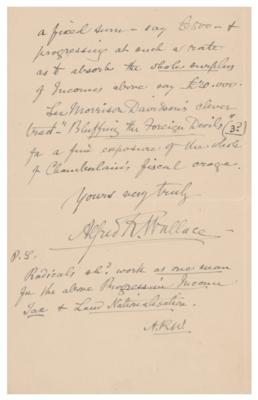 a fixed sum - say £500 - &
progressing at such a rate
as to absorb the whole surplus
of Incomes above say £20.000.
See Morrison Davidson's clever
tract - "Bluffing the Foreign Devils"
for a fine exposure of the whole
of Chamberlain's fiscal craze.
Yours very truly
Alfred R. Wallace
P.S.
Radicals shd. work as one man
for the above Progressive Income
Tax & Land Nationalisation.
A.R.W.